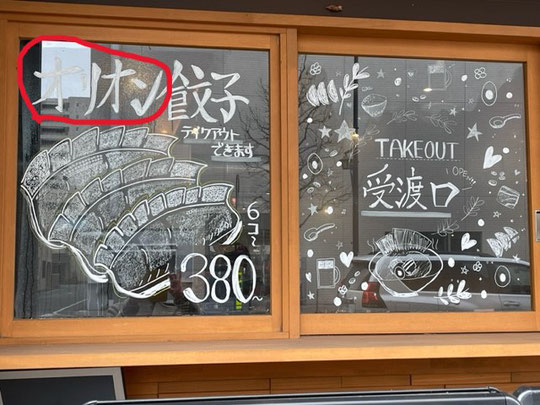 オリオン餃子
テイクアウト
できます
6コ〜
380〜
TAKEOUT
OPEN!
受渡口